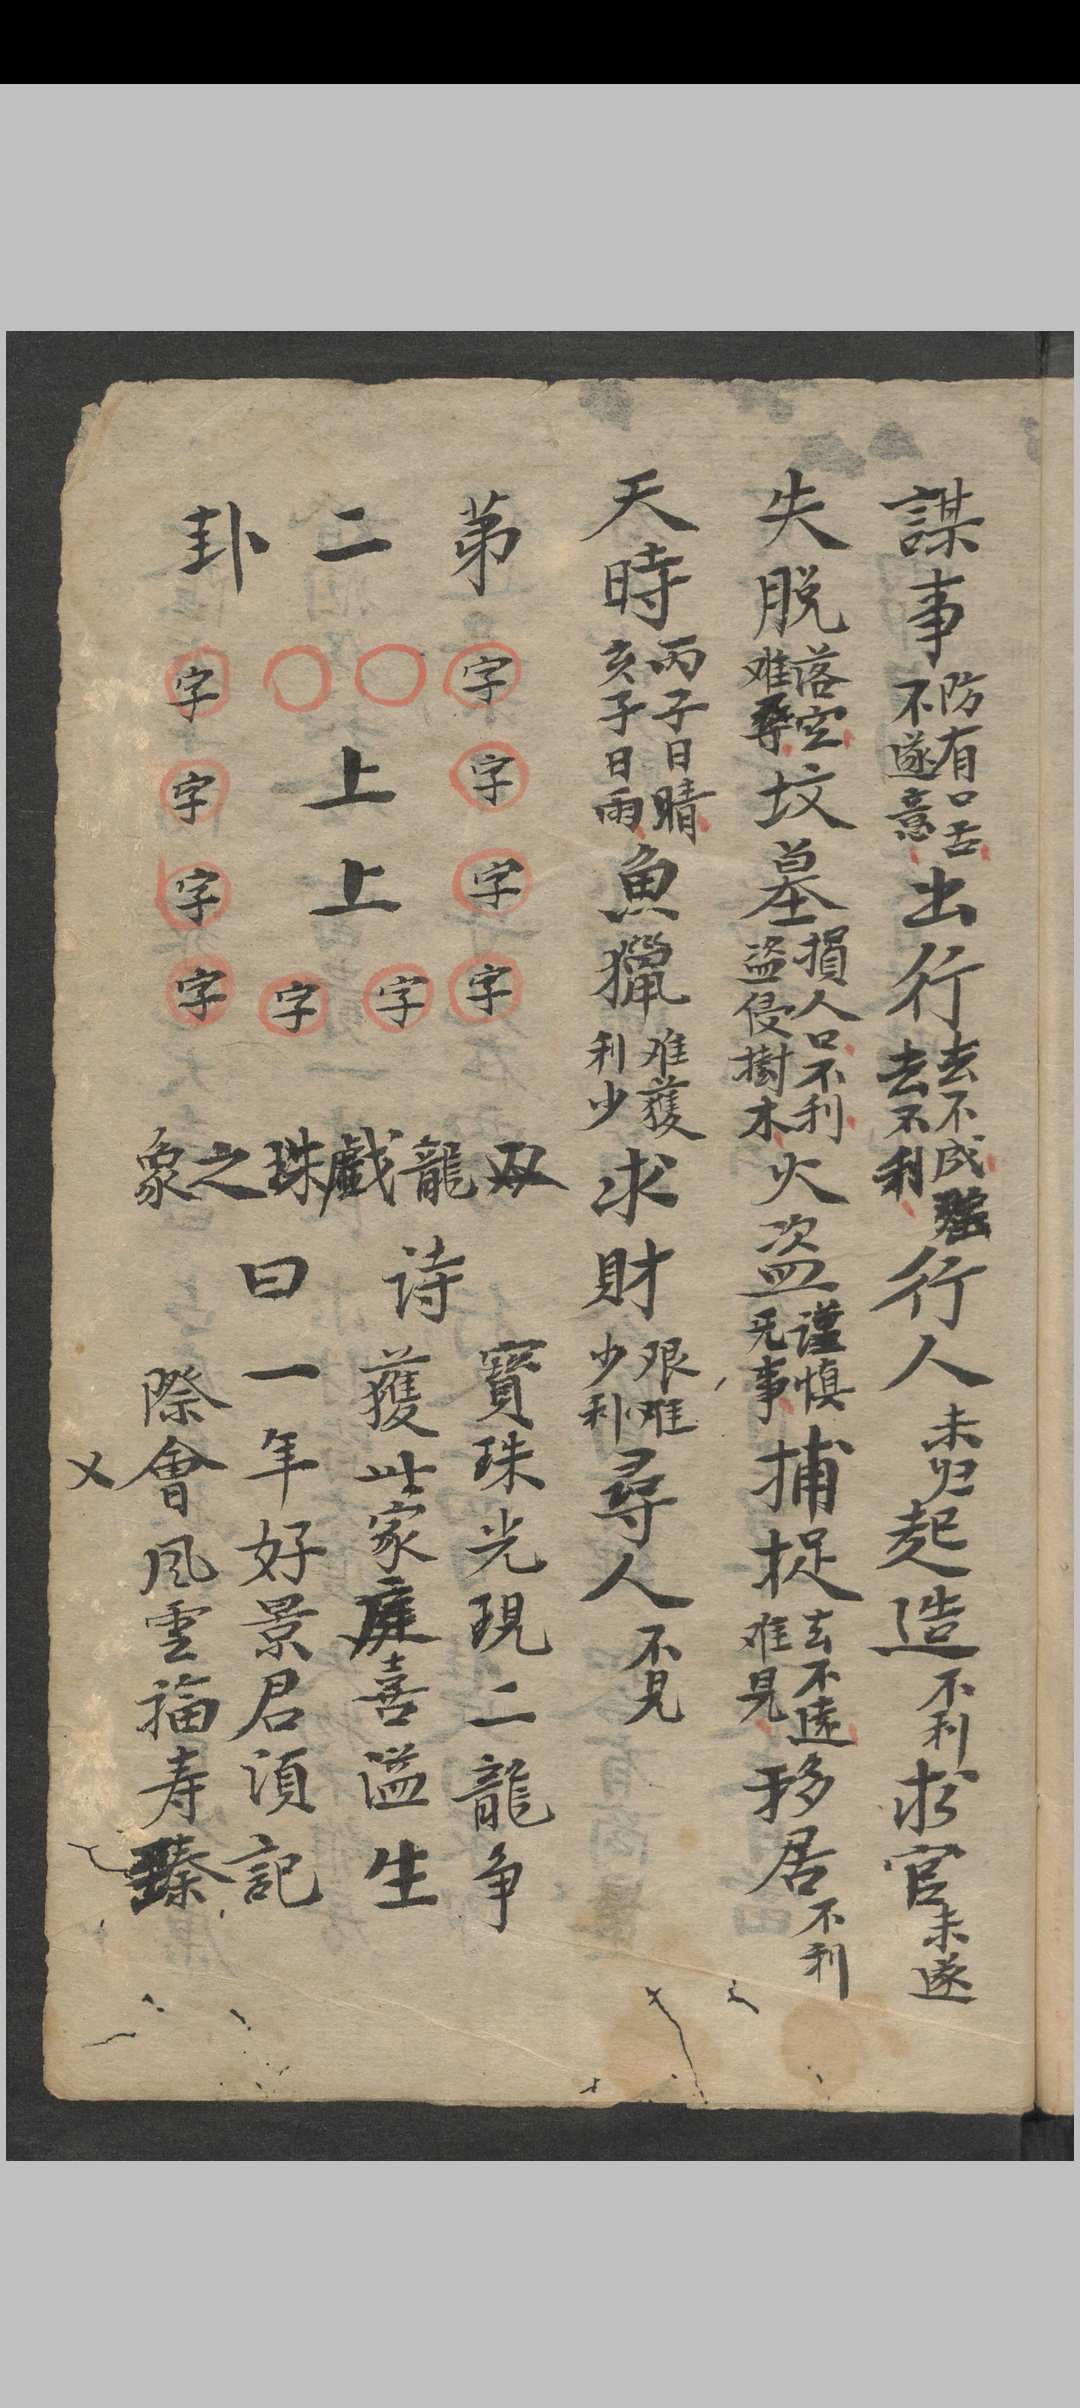 謀事防有口舌不遂意出行去不成去不利行人未归起造不利求官未遂
失脱落空难尋坟墓損人口不利盗侵樹木火盗謹慎无事捕捉去不遠难見移居不利
天時丙子日晴亥子日雨魚獵难獲利少求財艰难少利尋人不見
第二卦
字〇〇字
字上上字
字字
字字字字
双龍戲珠之象
诗曰
寳珠光現二龍争
獲此家庭喜溢生
一年好景君須記
際會风雲福寿臻